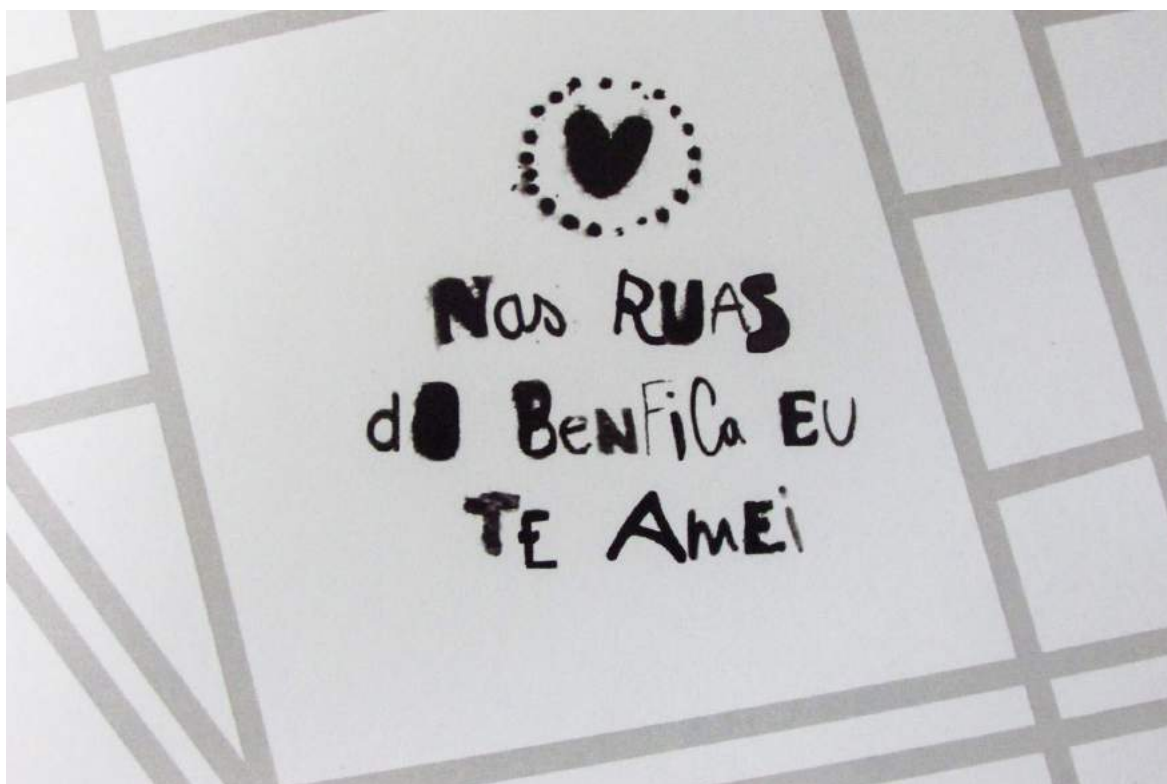 Nas RUAS
dO BeNFiCa EU
TE AmEi